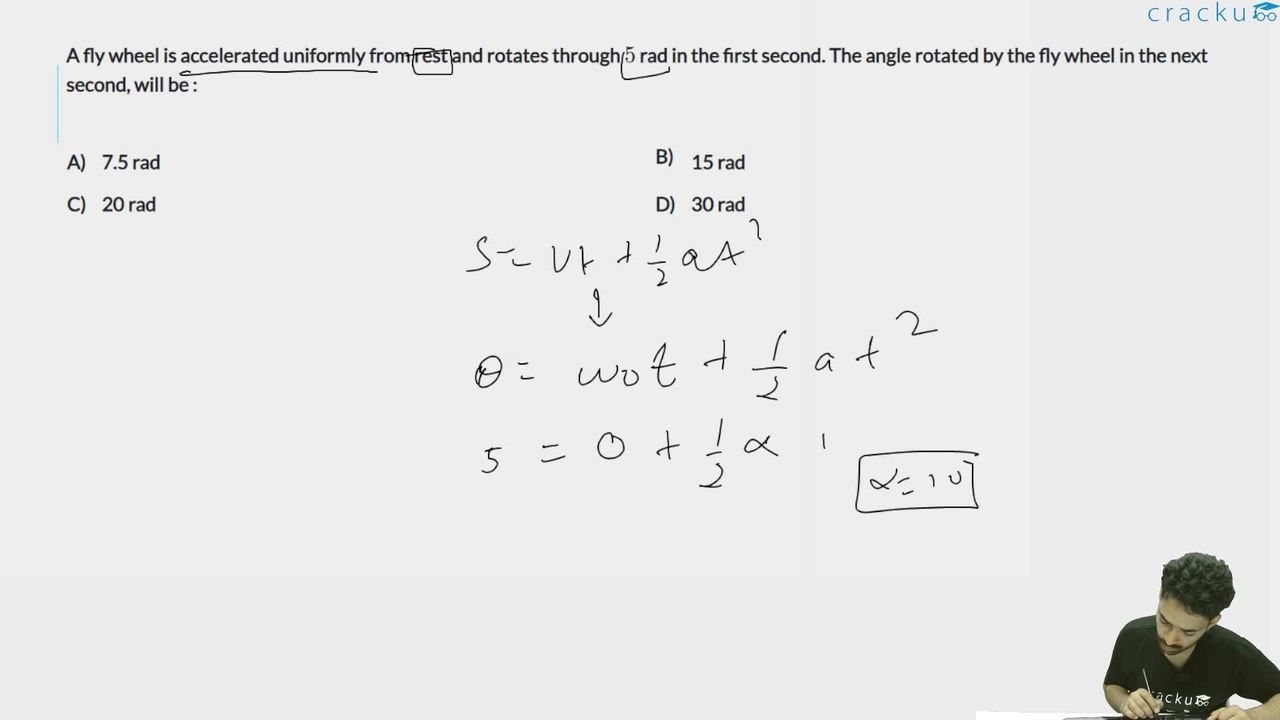 cracku
A fly wheel is accelerated uniformly from rest and rotates through 5 rad in the first second. The angle rotated by the fly wheel in the next
second, will be :
A) 7.5 rad
B) 15 rad
C) 20 rad
D) 30 rad
S = ut + 1/2 at²
↓
θ = ω₀t + 1/2 at²
5 = 0 + 1/2 α 1
α = 10
cracku